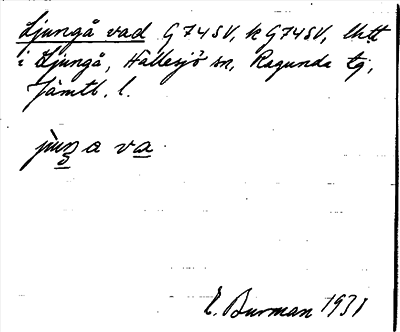 Ljungå vad G74SV, k G74SV, Utt
i Ljungå, Hällesjö sn, Ragunda tg,
Jämtl. l.
jùŋ a va
E. Burman 1931